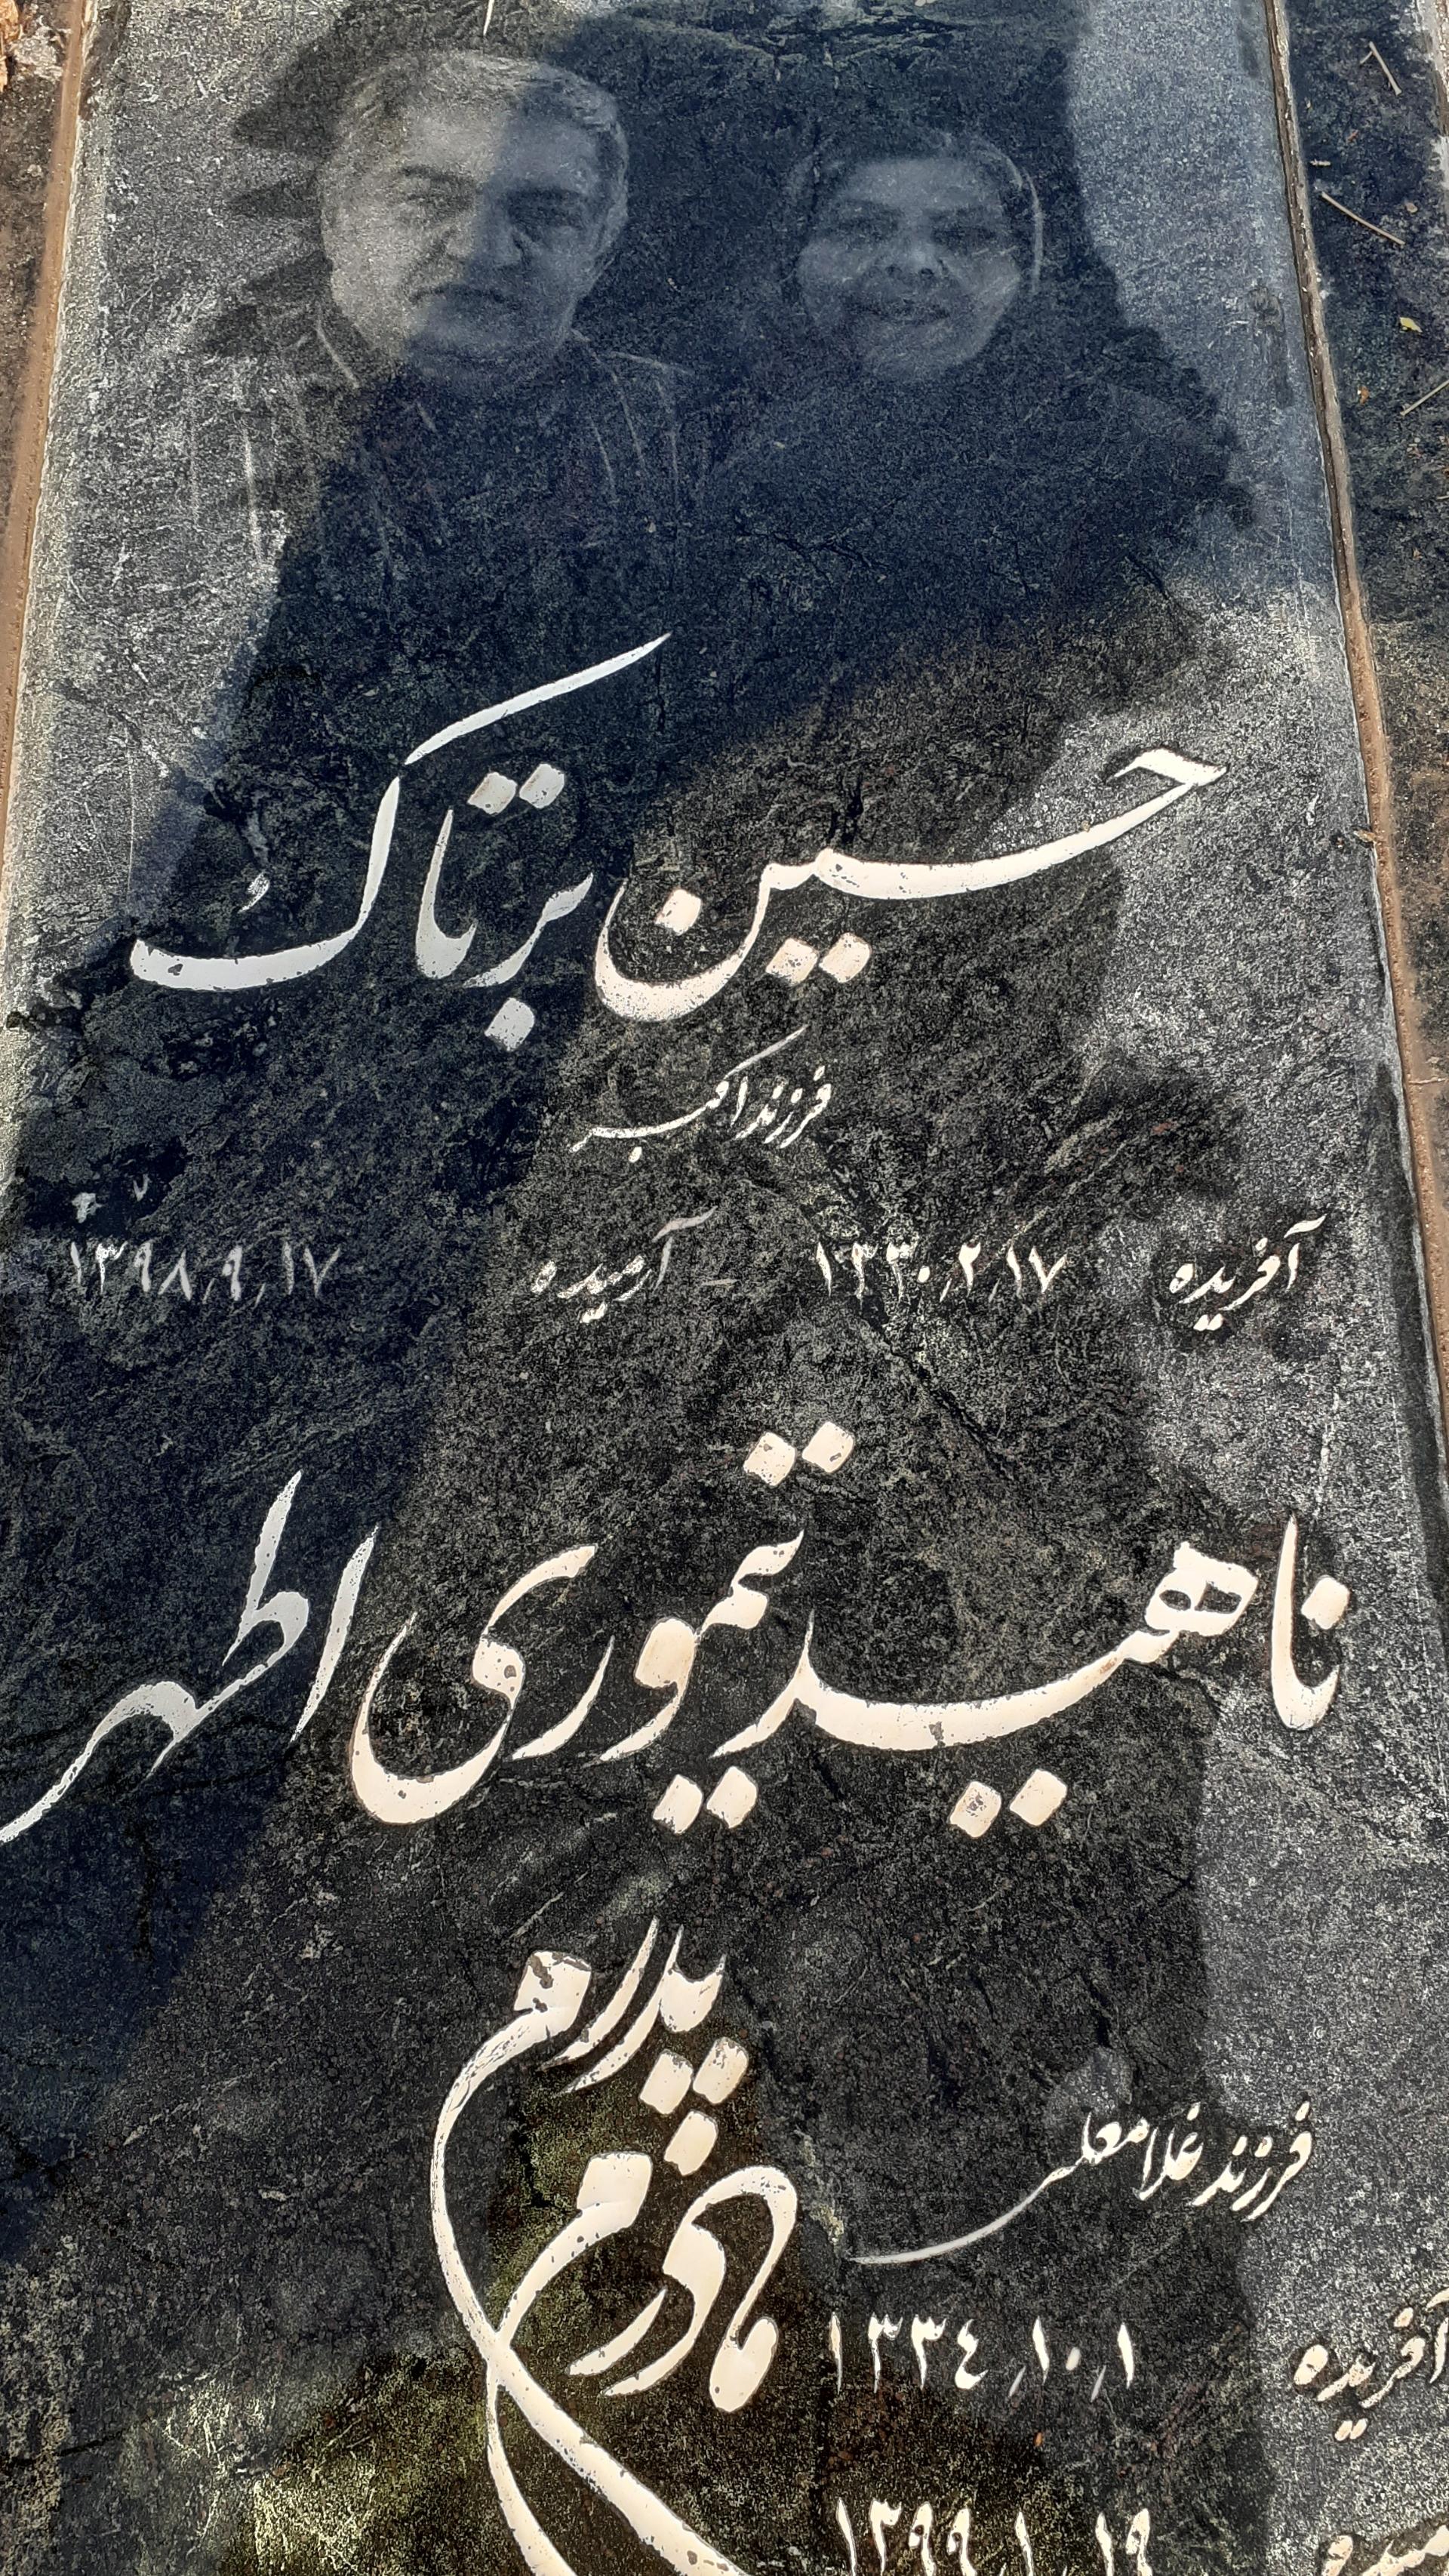 حسین برتاک
فرزند اکبر
آفریده ۱۳۳۰٫۲٫۱۷ آرمیده ۱۳۹۸٫۹٫۱۷
ناهید تیموری اطهر
پدرم
مادرم
فرزند غلامعلی
آفریده ۱۳۳٤٫۱۰٫۱
۱۳۹۹٫۱٫۱۹